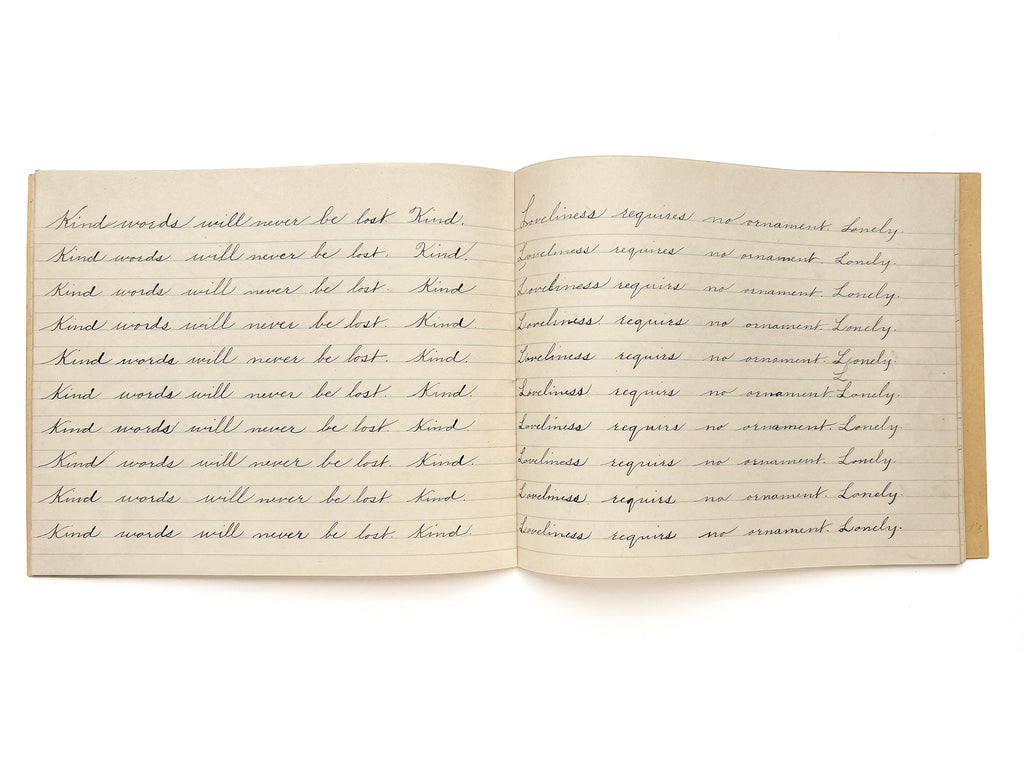 Kind words will never be lost Kind.
Kind words will never be lost. Kind.
Kind words will never be lost. Kind
Kind words will never be lost. Kind.
Kind words will never be lost. Kind.
Kind words will never be lost. Kind.
Kind words will never be lost. Kind.
Kind words will never be lost. Kind.
Kind words will never be lost Kind.
Kind words will never be lost. Kind.
Loveliness requires no ornament. Lonely.
Loveliness requires no ornament. Lonely.
Loveliness requirs no ornament. Lonely.
Loveliness requirs no ornament. Lonely.
Loveliness requirs no ornament. Lonely.
Loveliness requirs no ornament. Lonely.
Loveliness requirs no ornament. Lonely.
Loveliness requirs no ornament. Lonely.
Loveliness requirs no ornament. Lonely.
Loveliness requirs no ornament. Lonely.